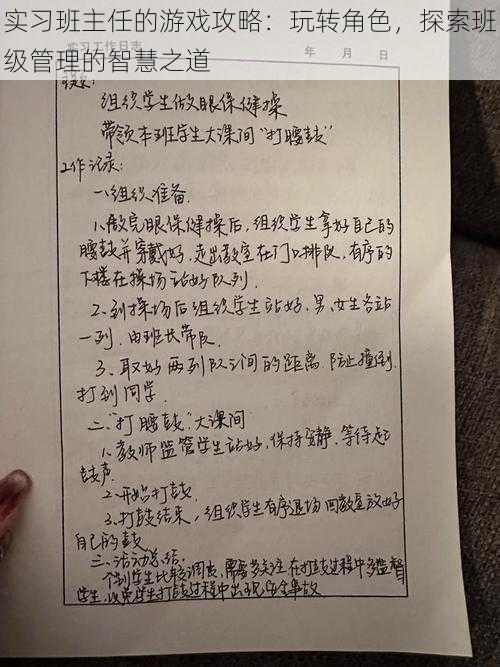 实习班主任的游戏攻略：玩转角色，探索班
级管理的智慧之道
实习工作日志
年 月 日
组织学生做眼保健操
带领本班学生大课间“打腰鼓”
工作记录：
一、组织准备.
1、做完眼保健操后，组织学生拿好自己的
腰鼓并穿戴好，走出教室在门口排队，有序的
下楼在操场站好队列.
2、到操场后组织学生站好，男、女生各站
一列，由班长带队.
3、取好两列队之间的距离，防止撞倒
打到同学.
二、“打腰鼓”大课间
1、教师监管学生站好，保持安静，等待起
鼓声.
2、开始打鼓.
3、打鼓结束，组织学生有序退场回教室放好
自己的鼓
三、活动总结：
个别学生比较调皮，需要多关注在打鼓过程中多监督
学生，以免学生打鼓过程中出现安全事故